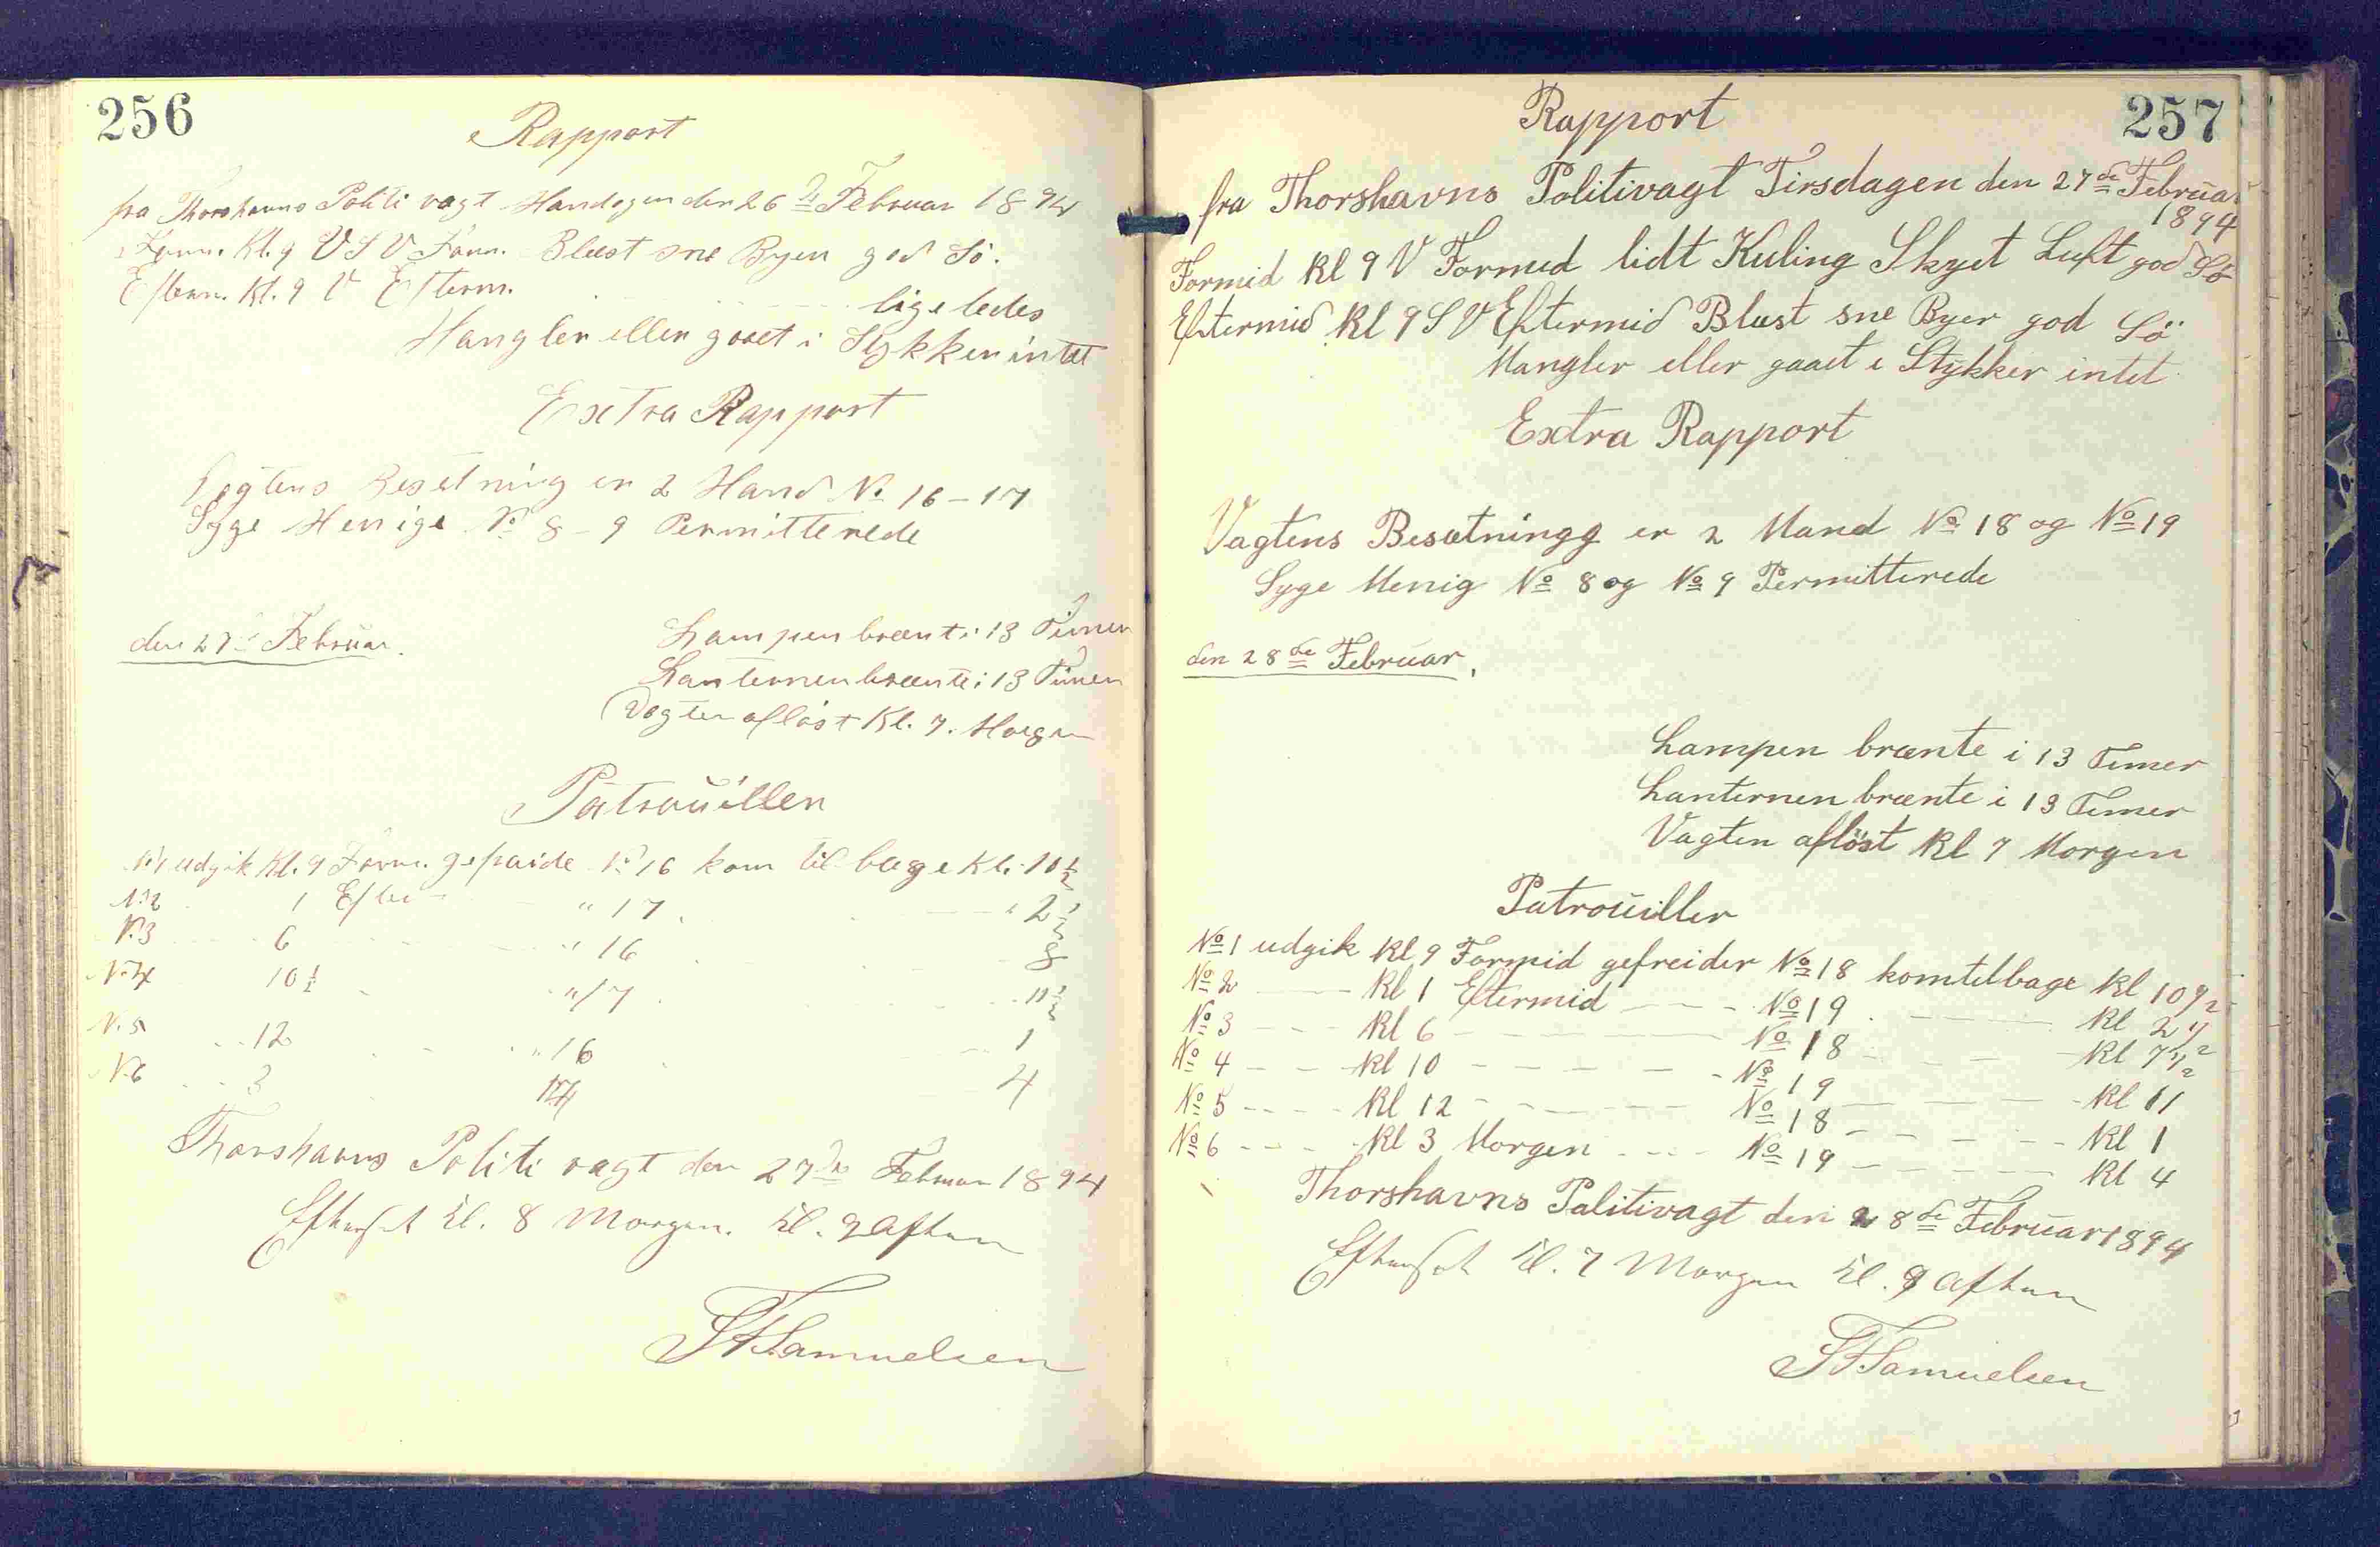 256
Rapport
fra Thorshavns Politi vagt Mandagen den 26de Februar 1894
Form. Kl. 9 V S V Form. Blæst sne Byer god Sö.
Efterm. Kl. 9 V Efterm. ligeledes
Mangler eller gaaet i Stykker intet
Extra Rapport
Vagtens Besetning er 2 Mand No 16 - 17
Syge Menige No 8 - 9 Permitterede
den 27de Februar.
Lampen brænte i 13 Timer
Lanternen brænte i 13 Timer
Vagten aflöst Kl. 7. Morgen
Patrouiller
No 1 udgik Kl. 9 Form. gefraide No 16 kom tilbage Kl. 10 1/2
No 2 1 Efter " 17 " 2 1/2
No 3 6 " 16 8
No 4 10 1/2 " 17 11 1/2
No 5 12 " 16 1
No 6 3 17 4
Thorshavns Politi vagt den 27de Februar 1894
Efterset Kl. 8 Morgen. Kl. 9 Aften
SFSamuelsen
257
Rapport
fra Thorshavns Politivagt Tirsdagen den 27de Februar
1894
Formid Kl 9 V Formid lidt Kuling Skyet Luft god Sö
Eftermid Kl 9 S V Eftermid Blæst sne Byer god Sö
Mangler eller gaaet i Stykker intet
Extra Rapport
Vagtens Besætningg er 2 Mand No 18 og No 19
Syge Menig No 8 og No 9 Permitterede
den 28de Februar.
Lampen brænte i 13 Timer
Lanternen brænte i 13 Timer
Vagten aflöst Kl 7 Morgen
Patrouiller
No 1 udgik Kl 9 Formid gefreider No 18 kom tilbage Kl 10 1/2
No 2 Kl 1 Eftermid No 19 Kl 2 1/2
No 3 Kl 6 No 18 Kl 7 1/2
No 4 Kl 10 No 19 Kl 11
No 5 Kl 12 No 18 Kl 1
No 6 Kl 3 Morgen No 19 Kl 4
Thorshavns Politivagt den 28de Februar 1894
Efterset Kl. 7 Morgen Kl. 9 Aften
SFSamuelsen